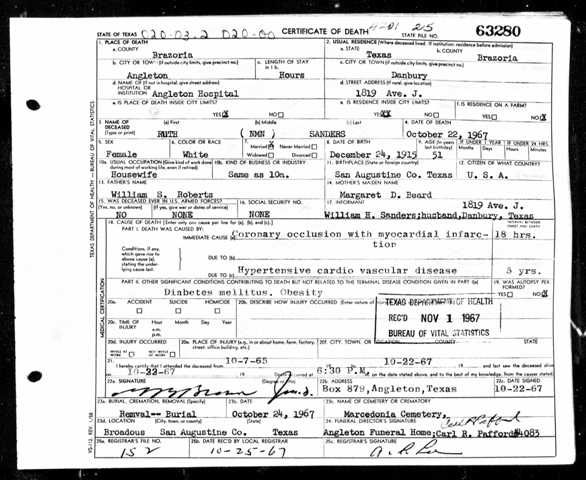 STATE OF TEXAS
CERTIFICATE OF DEATH
STATE FILE NO. 63280
1. PLACE OF DEATH
2. USUAL RESIDENCE (Where deceased lived. If institution: residence before admission)
a. COUNTY Brazoria
a. STATE Texas
b. COUNTY Brazoria
b. CITY OR TOWN (If outside city limits, give precinct no.) Angleton
c. LENGTH OF STAY in 1 b. Hours
c. CITY OR TOWN (If outside city limits, give precinct no.) Danbury
d. NAME OF (If not in hospital, give street address) HOSPITAL OR INSTITUTION Angleton Hospital
d. STREET ADDRESS (If rural, give location) 1819 Ave. J.
e. IS PLACE OF DEATH INSIDE CITY LIMITS? YES X NO
e. IS RESIDENCE INSIDE CITY LIMITS? YES XX NO
f. IS RESIDENCE ON A FARM? YES NO X
3. NAME OF DECEASED (Type or print) (a) First RUTH (b) Middle ( NMN ) (c) Last SANDERS
4. DATE OF DEATH October 22, 1967
5. SEX Female
6. COLOR OR RACE White
7. Married X Never Married Widowed Divorced
8. DATE OF BIRTH December 24, 1915
9. AGE (In years last birthday) 51
IF UNDER 1 YEAR
IF UNDER 24 HRS.
10a. USUAL OCCUPATION (Give kind of work done during most of working life, even if retired) Housewife
10b. KIND OF BUSINESS OR INDUSTRY Same as 10a.
11. BIRTHPLACE (State or foreign country) San Augustine Co. Texas
12. CITIZEN OF WHAT COUNTRY? U. S. A.
13. FATHER'S NAME William S. Roberts
14. MOTHER'S MAIDEN NAME Margaret D. Beard
15. WAS DECEASED EVER IN U.S. ARMED FORCES? (Yes, no, or unknown) NO (If yes, give war or dates of service) NONE
16. SOCIAL SECURITY NO. NONE
17. INFORMANT 1819 Ave. J. William H. Sanders;husband,Danbury, Texas
18. CAUSE OF DEATH (Enter only one cause per line for (a), (b), and (c).)
INTERVAL BETWEEN ONSET AND DEATH
PART I. DEATH WAS CAUSED BY:
IMMEDIATE CAUSE (a) Coronary occlusion with myocardial infarction 18 hrs.
Conditions, if any, which gave rise to above cause (a), stating the underlying cause last.
DUE TO (b)
DUE TO (c) Hypertensive cardio vascular disease 5 yrs.
PART II. OTHER SIGNIFICANT CONDITIONS CONTRIBUTING TO DEATH BUT NOT RELATED TO THE TERMINAL DISEASE CONDITION GIVEN IN PART I(a)
Diabetes mellitus, Obesity
19. WAS AUTOPSY PERFORMED? YES NO X
20a. ACCIDENT SUICIDE HOMICIDE
20b. DESCRIBE HOW INJURY OCCURRED.
TEXAS DEPARTMENT OF HEALTH
REC'D NOV 1 1967
BUREAU OF VITAL STATISTICS
20c. TIME OF INJURY Hour Month Day Year a.m. p.m.
20d. INJURY OCCURRED WHILE AT WORK NOT WHILE AT WORK
20e. PLACE OF INJURY (e.g. in or about home, farm, factory, street, office building, etc.)
20f. CITY, TOWN, OR
21. I hereby certify that I attended the deceased from 10-7-65 10-22-67 and last saw the deceased alive
10-22-67 6:30 P.M.
22a. SIGNATURE
22b. ADDRESS Box 879, Angleton,Texas
22c. DATE SIGNED 10-22-67
23a. BURIAL, CREMATION, REMOVAL (Specify) Remval-- Burial
23b. DATE October 24, 1967
23c. NAME OF CEMETERY OR CREMATORY Marcedonia Cemetery,
23d. LOCATION (City, town, or county) (State) Broadous San Augustine Co. Texas
24. FUNERAL DIRECTOR'S SIGNATURE Carl R Pafford
Angleton Funeral Home;Carl R. Pafford #4083
25a. REGISTRAR'S FILE NO. 152
25b. DATE REC'D BY LOCAL REGISTRAR 10-25-67
25c. REGISTRAR'S SIGNATURE
TEXAS DEPARTMENT OF HEALTH—BUREAU OF VITAL STATISTICS
MEDICAL CERTIFICATION